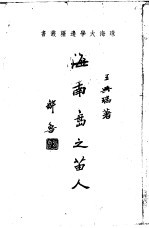 珠海大學邊疆叢書
王興瑞著
海南島之苗人